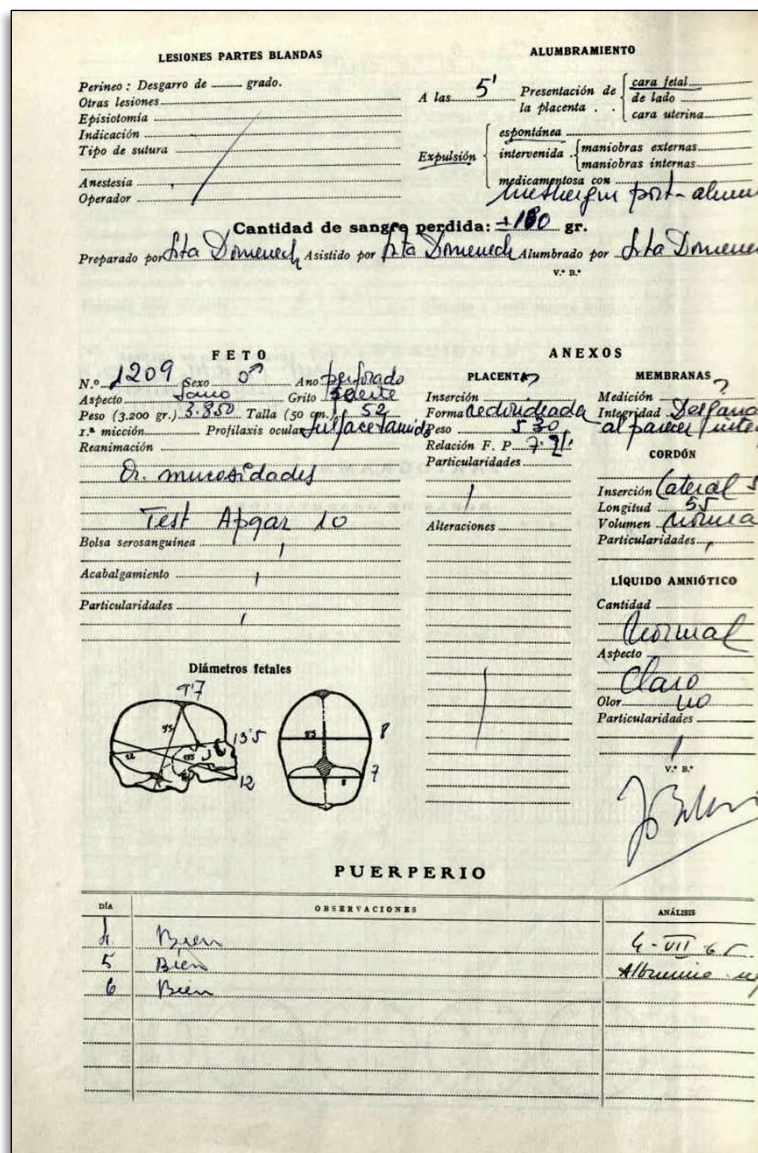 LESIONES PARTES BLANDAS
Perineo : Desgarro de grado.
Otras lesiones
Episiotomía
Indicación
Tipo de sutura
Anestesia
Operador
ALUMBRAMIENTO
A las 5' Presentación de la placenta . .
cara fetal
de lado
cara uterina
Expulsión
espontánea
intervenida . maniobras externas
maniobras internas
medicamentosa con
methergin post-alum
Cantidad de sangre perdida: ± gr.
Preparado por Srta Domenech Asistido por Srta Domenech Alumbrado por Srta Domenec
V.º B.º
FETO
N.º 1209 Sexo ♂ Ano perforado
Aspecto Sano Grito fuerte
Peso (3.200 gr.) 3.850 Talla (50 cm.) 52
1.ª micción Profilaxis ocular Sulfacetamida
Reanimación
mucosidades
Test Apgar 10
Bolsa serosanguínea
Acabalgamiento
Particularidades
Diámetros fetales
9'7
9'5
13'5
12
8
7
ANEXOS
PLACENTA
Inserción
Forma redondeada
Peso 530
Relación F. P.
Particularidades
Alteraciones
MEMBRANAS
Medición
Integridad
al parecer
CORDÓN
Inserción lateral
Longitud 55
Volumen norma
Particularidades
LÍQUIDO AMNIÓTICO
Cantidad
Normal
Aspecto
Claro
Olor no
Particularidades
V.º B.º
PUERPERIO
DÍA OBSERVACIONES ANÁLISIS
4 Bien 4-VII-65
5 Bien Albumina
6 Bien